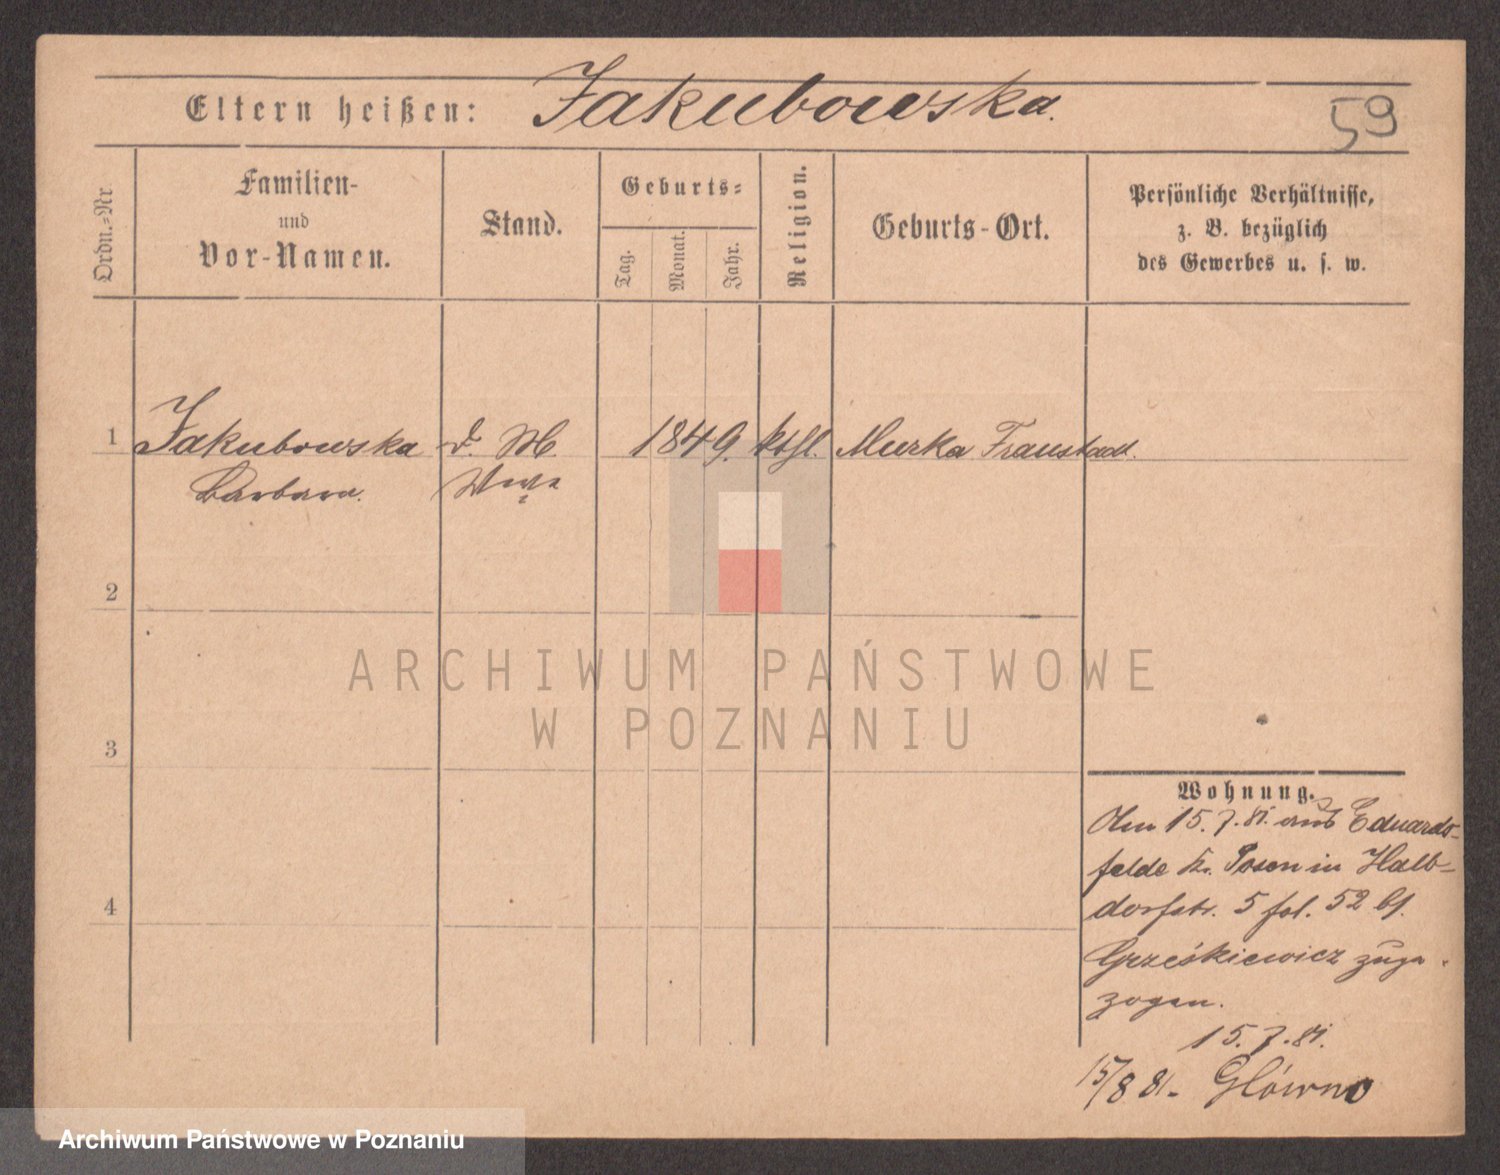 Eltern heißen: Jakubowska.
59
Ordn.-Nr
Familien-
und
Vor-Namen.
Stand.
Geburts-
Tag.
Monat.
Jahr.
Religion.
Geburts-Ort.
Persönliche Verhältnisse,
z. B. bezüglich
des Gewerbes u. s. w.
1 Jakubowska 1849. kthl. Murka Fraustadt.
Barbara. Wwe
2
3
4
ARCHIWUM PAŃSTWOWE
W POZNANIU
Wohnung.
Am 15.7.81. aus Eduards-
felde Kr. Posen in Halb-
dorfstr. 5 fol. 52 bf.
Grześkiewicz zuge-
zogen.
15.7.81.
15/8 81- Główno
Archiwum Państwowe w Poznaniu